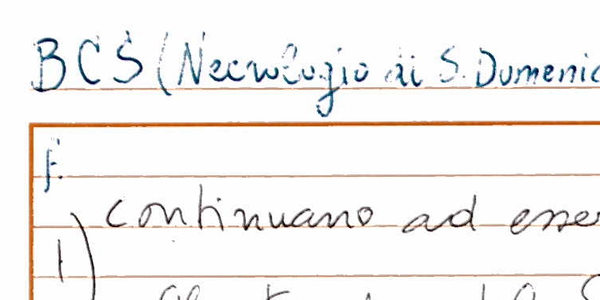 BCS (Necrologio di S. Domenic
f.
continuano ad esser
1)